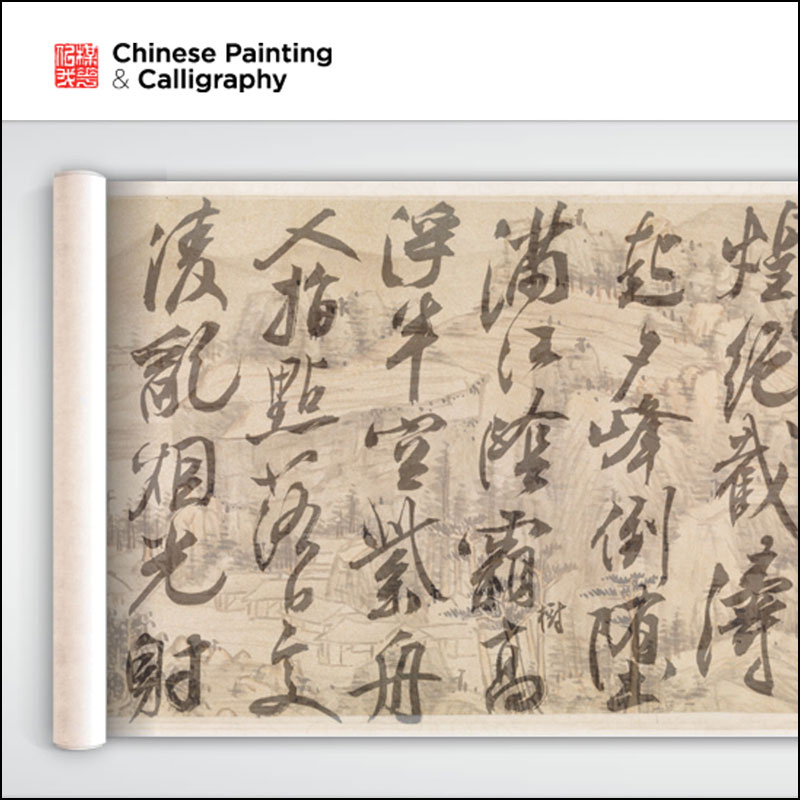 Chinese Painting
& Calligraphy
煌絕濤
起夕峰倒墮
滿江陰高樹
浮半空紫舟
人指點落日交
淩亂烟光射